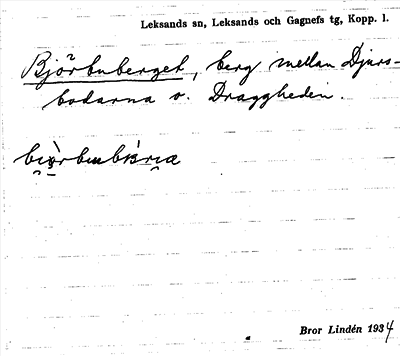 Leksands sn, Leksands och Gagnefs tg, Kopp. l.
Björbuberget, berg mellan Djurs-
bodarna o. Draggheden.
Bror Lindén 1934